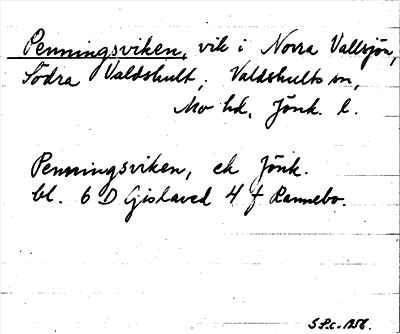 Penningsviken, vik i Norra Vallsjön,
Södra Valdshult, Valdshults sn,
Mo hd, Jönk. l.
Penningsviken, ek Jönk.
bl. 6 D Gislaved 4 f Rannebo.
S.P.c. 1958.